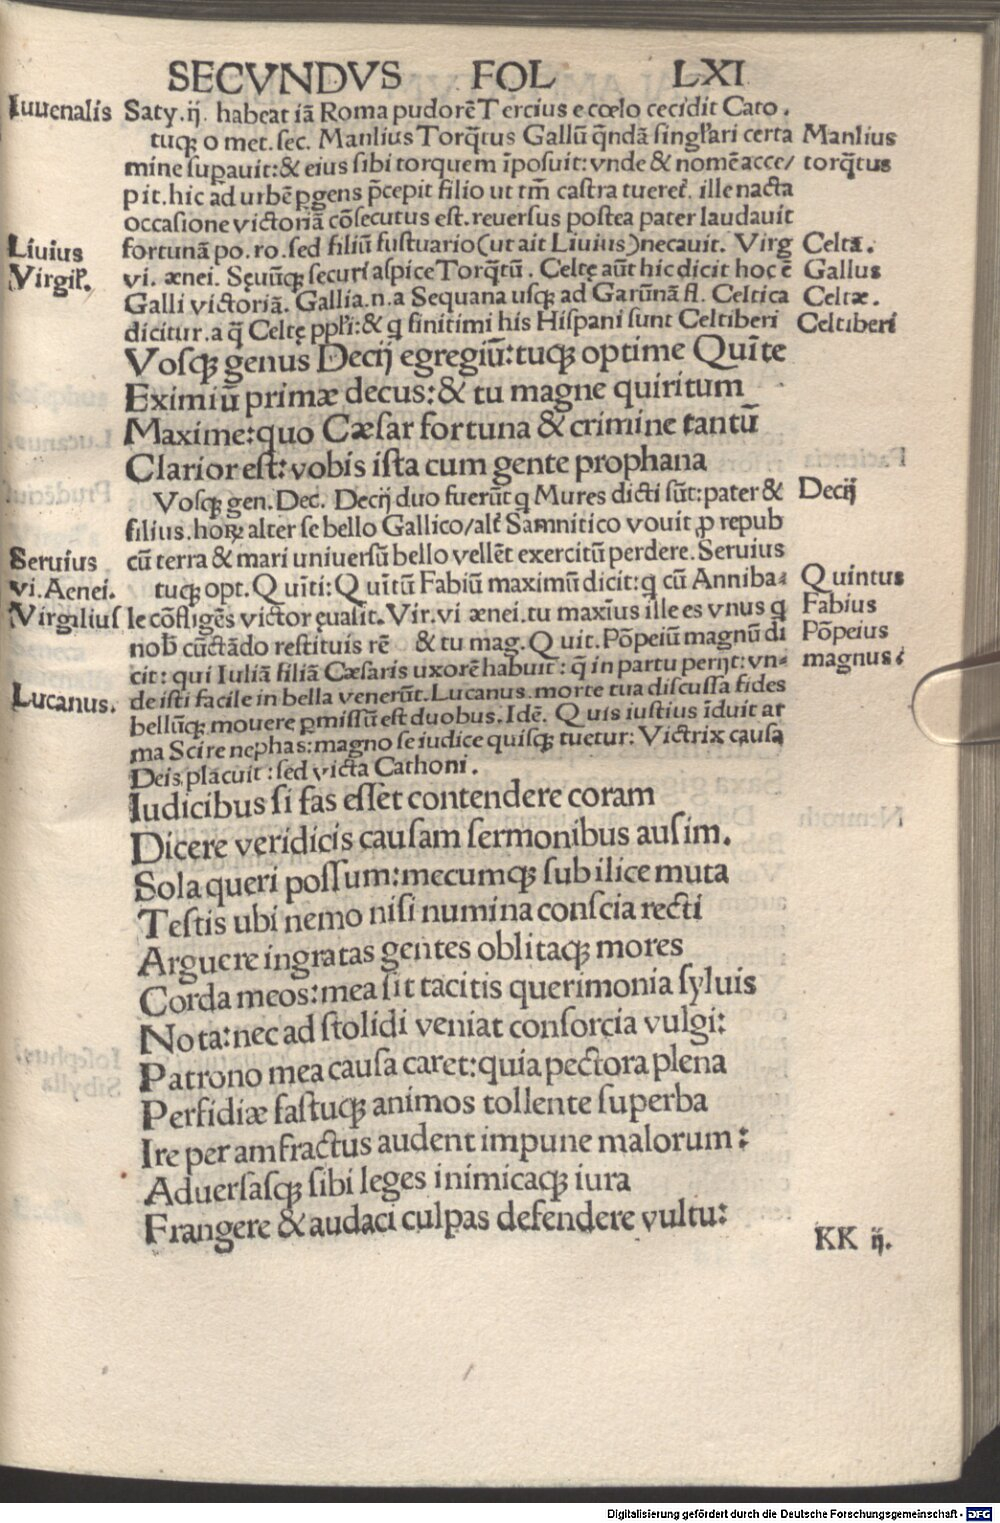 SECVNDVS FOL LXI
Iuuenalis Saty.ij. habeat iã Roma pudorẽ Tercius e cœlo cecidit Cato.
tuqꝫ o met. sec. Manlius Torq̃tus Gallũ q̃ndã singl'ari certa Manlius
mine supauit: & eius sibi torquem ĩposuit: vnde & nomẽ acce/ torq̃tus
pit. hic ad urbẽ ꝑgens p̃cepit filio ut tm̃ castra tueret̃. ille nacta
occasione victoriã cõsecutus est. reuersus postea pater laudauit
Liuius fortunã po. ro. sed filiũ fustuario (ut ait Liuius) necauit. Virg Celta.
Virgil'. vi. ænei. Sęuũqꝫ securi aspice Torq̃tũ. Celtę aũt hic dicit hoc ẽ Gallus
Galli victoriã. Gallia.n.a Sequana usqꝫ ad Garũnã fl. Celtica Celtæ.
dicitur. a q̃ Celtę ppl'i: & q finitimi his Hispani sunt Celtiberi Celtiberi
Vosqꝫ genus Decij egregiũ: tuqꝫ optime Quĩte
Eximiũ primæ decus: & tu magne quiritum
Maxime: quo Cæsar fortuna & crimine tantũ
Clarior est: vobis ista cum gente prophana
Vosqꝫ gen. Dec. Decij duo fuerũt q Mures dicti sũt: pater & Decij
filius. hoꝝ alter se bello Gallico/alt̃ Samnitico vouit ꝓ repub
Seruius cũ terra & mari uniuersũ bello vellẽt exercitũ perdere. Seruius
vi. Aenei. tuqꝫ opt. Quĩti: Quĩtũ Fabiũ maximũ dicit: q cũ Anniba⸗ Quintus
Virgilius le cõfligẽs victor ęualit. Vir. vi ænei. tu maxĩus ille es vnus q Fabius
nob̃ cũctãdo restituis rẽ & tu mag. Quit. Põpeiũ magnũ di Põpeius
cit: qui Iuliã filiã Cæsaris uxorẽ habuit: q̃ in partu perijt: vn⸗ magnus:
Lucanus. de isti facile in bella venerũt. Lucanus. morte tua discussa fides
bellũqꝫ mouere ꝑmissũ est duobus. Idẽ. Quis iustius ĩduit ar
ma Scire nephas: magno se iudice quisqꝫ tuetur: Victrix causa
Deis placuit: sed victa Cathoni.
Iudicibus si fas esset contendere coram
Dicere veridicis causam sermonibus ausim.
Sola queri possum: mecumqꝫ sub ilice muta
Testis ubi nemo nisi numina conscia recti
Arguere ingratas gentes oblitaqꝫ mores
Corda meos: mea sit tacitis querimonia syluis
Nota: nec ad stolidi veniat consorcia vulgi:
Patrono mea causa caret: quia pectora plena
Perfidiæ fastuqꝫ animos tollente superba
Ire per amfractus audent impune malorum:
Aduersasqꝫ sibi leges inimicaqꝫ iura
Frangere & audaci culpas defendere vultu:
KK ij.
Digitalisierung gefördert durch die Deutsche Forschungsgemeinschaft - DFG